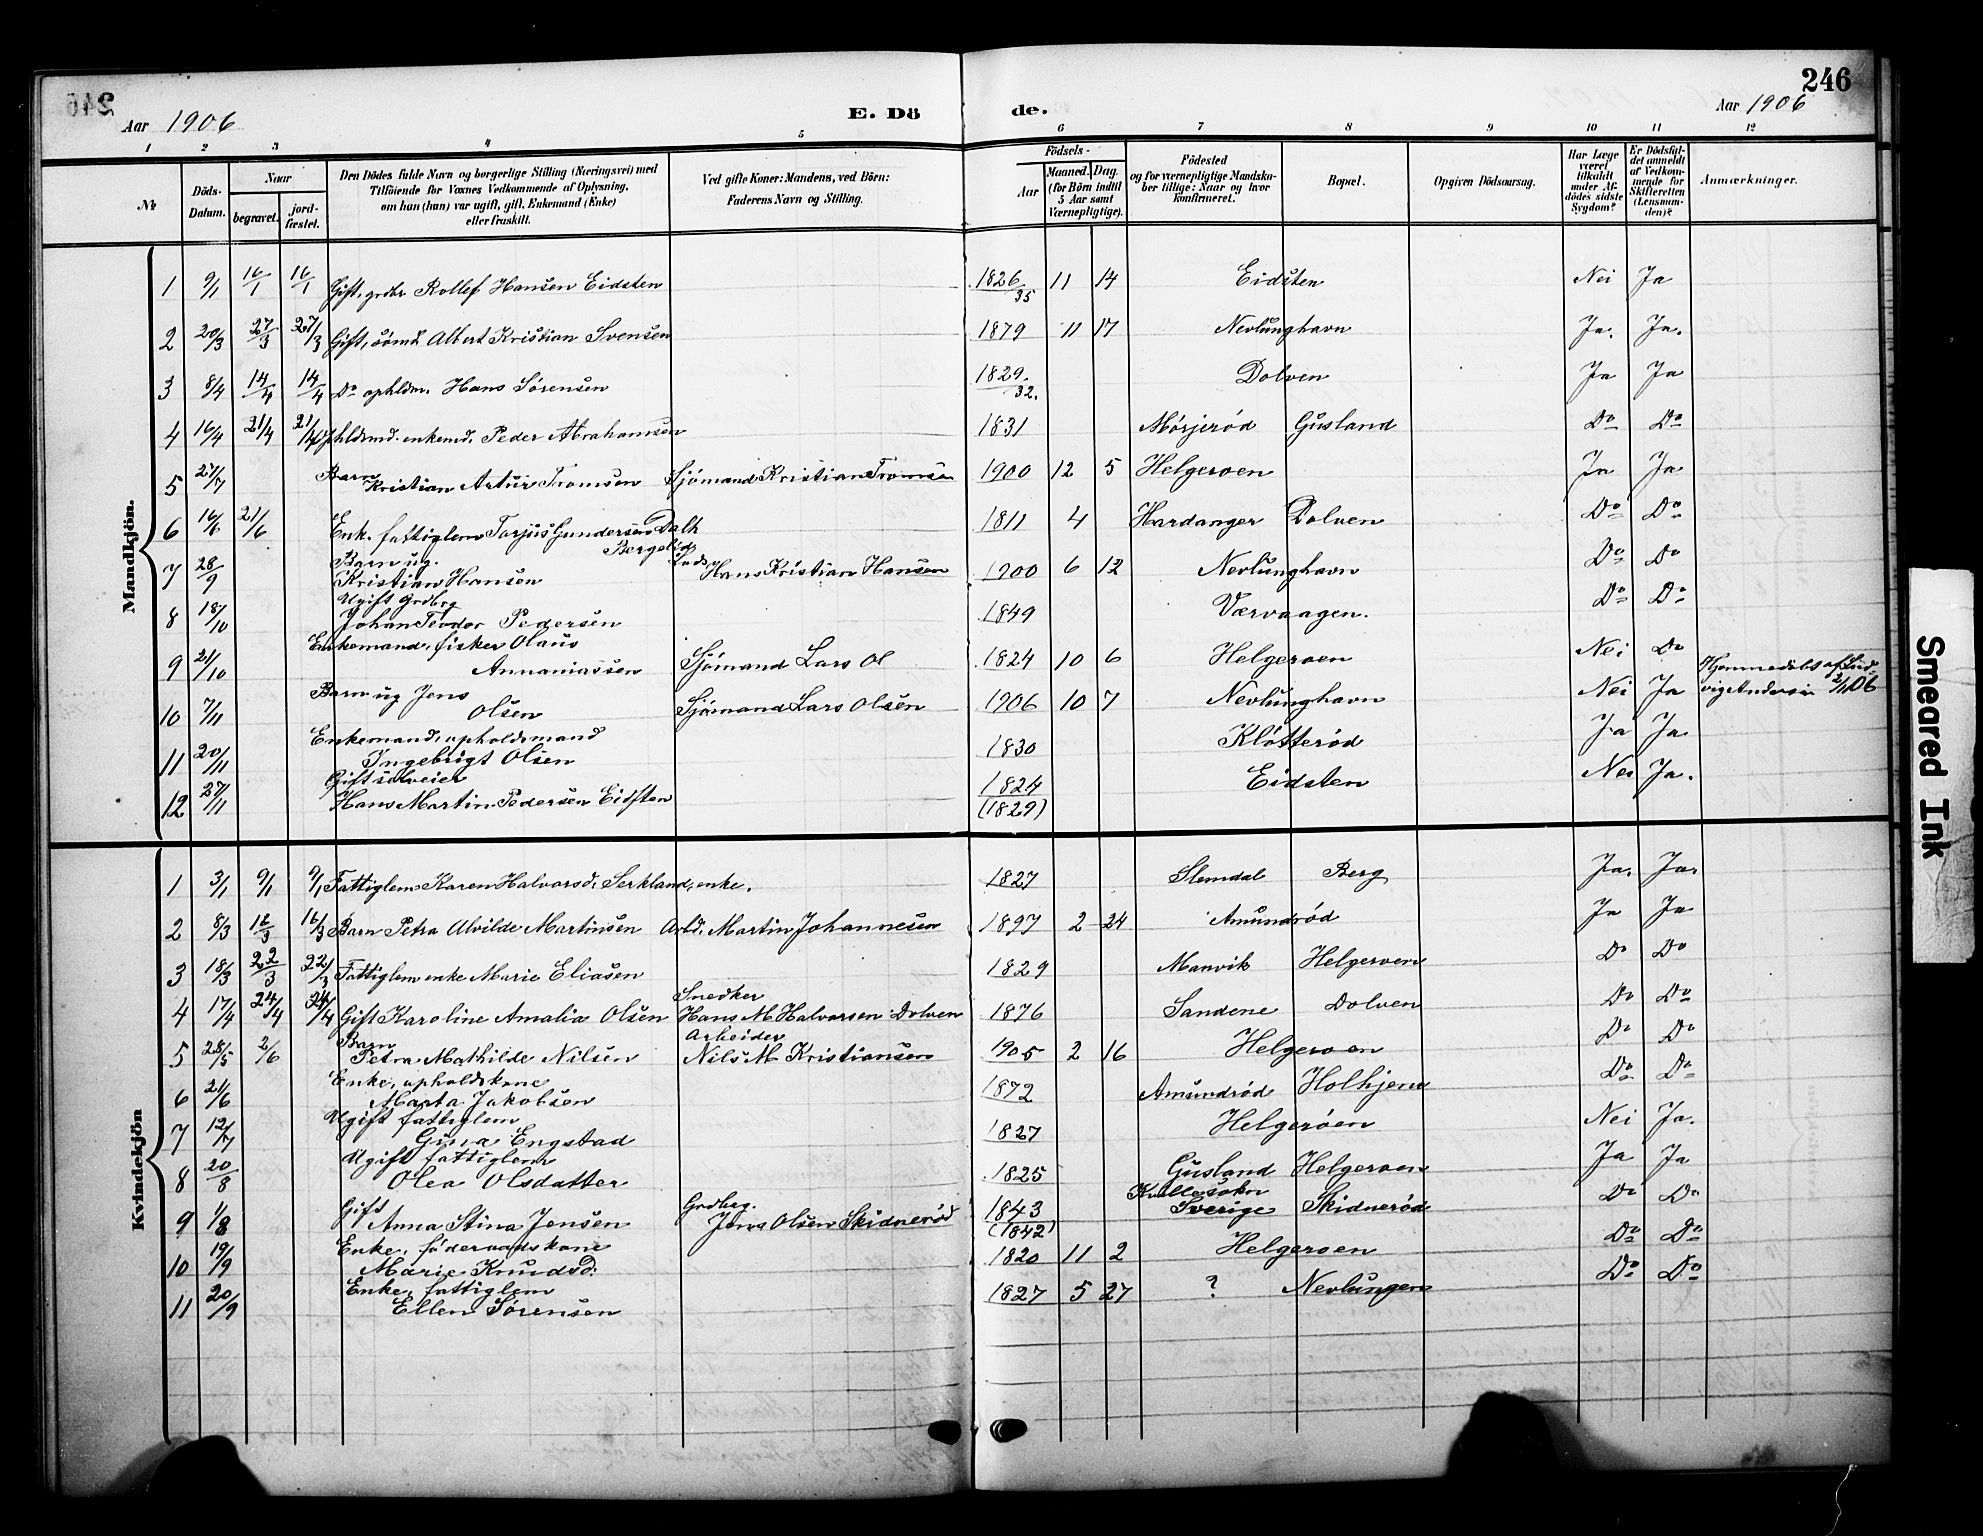 246
Aar 1906
E. Dö
de.
Aar 1906
1 2 3 4 5 6 7 8 9 10 11 12
№
Döds-Datum.
Naar
begravet.
jord-fæstet.
Den Dödes fulde Navn og borgerlige Stilling (Næringsvei) med
Tilföiende for Voxnes Vedkommende af Oplysning,
om han (hun) var ugift, gift, Enkemand (Enke)
eller fraskilt.
Ved gifte Koner: Mandens, ved Börn:
Faderens Navn og Stilling.
Födsels-
Aar
Maaned. Dag.
(for Börn indtil
5 Aar samt
Værnepligtige).
Födested
og for værnepligtige Mandska-
ber tillige: Naar og hvor
konfirmeret.
Bopæl.
Opgiven Dödsaarsag.
Har Læge
været
tilkaldt
under Af-
dödes sidste
Sygdom?
Er Dödsfal-
det anmeldt
af Vedkom-
mende for
Skifteretten
(Lensman-
den)?
Anmærkninger.
Mandkjön.
1 9/1 16/1 16/1 Gift, grdbr Rollef Hansen Eidsten 1826/35 11 14 Eidsten Nei Ja
2 20/3 27/3 27/3 Gift, sömd Albert Kristian Svensen 1879 11 17 Nevlunghavn Ja. Ja.
3 8/4 14/4 14/4 Do opholdm. Hans Sørensen 1829/32. Dolven Ja Ja
4 16/4 21/4 21/4 ophldsmd. enkemd. Peder Abrahamsen 1831 Mørjerød Gusland Do Do
5 27/7 Barn Kristian Artur Tromsen Sjömand Kristian Tromsen 1900 12 5 Helgeroen Ja Ja
6 16/6 21/6 Enk. fattiglem Torjus Gundersen Dalh Bergelid 1811 4 Hardanger Dolven Do Do
7 28/9 Barn ug. Kristian Hansen Lods Hans Kristian Hansen 1900 6 12 Nevlunghavn Do Do
8 18/10 Ugift Grdbrg Johan Teodor Pedersen 1849 Værvaagen. Do Do
9 21/10 Enkemand, fisker Olaus Annaniassen Sjömand Lars Ol 1824 10 6 Helgeroen Nei Do
10 7/11 Barn ug Jens Olsen Sjömand Lars Olsen 1906 10 7 Nevlunghavn Nei Ja Hjemmedöbt af Lud-
vig Andersen 2/11 06
11 20/11 Enkemand, opholdsmand Ingebrigt Olsen 1830 Kløtterød Ja Ja.
12 27/11 Gift selveier Hans Martin Pedersen Eidsten 1824 (1829) Eidsten Nei Ja.
Kvindekjön
1 3/1 9/1 9/1 Fattiglem Karen Halvorsd. Serkland, enke. 1827 Slemdal Berg Ja. Ja.
2 8/3 16/3 16/3 Barn Petra Alvilde Martinsen Arbd. Martin Johannesen 1897 2 24 Amundrød Ja Ja
3 18/3 22/3 22/3 Fattiglem enke Marie Eliasen 1829 Manvik Helgeroen Do Do
4 17/4 24/4 24/4 Gift Karoline Amalia Olsen Snedker Hans M Halvorsen Dolven 1876 Sandene Dolven Do Do
5 28/5 2/6 Barn Petra Mathilde Nilsen Arbeider Nils M Kristiansen 1905 2 16 Helgeroen Do Do
6 21/6 Enke, opholdskone Marta Jakobsen 1872 Amundrød Holhjem Do Do
7 12/7 Ugift fattiglem Gina Engstad 1827 Helgerøen Nei Ja.
8 20/8 Ugift fattiglem Olea Olsdatter 1825 Gusland Helgeroen Ja Ja
9 1/8 Gift Anna Stina Jensen Grdbrg. Jens Olsen Skidnerød 1843 (1842) Sverige Skidnerød Do Do
10 19/9 Enke, föderaadskone Marie Knudsd. 1820 11 2 Helgeroen Do Do
11 20/9 Enke, fattiglem Ellen Sørensen 1827 5 27 ? Nevlungen Do Do
Smeared Ink